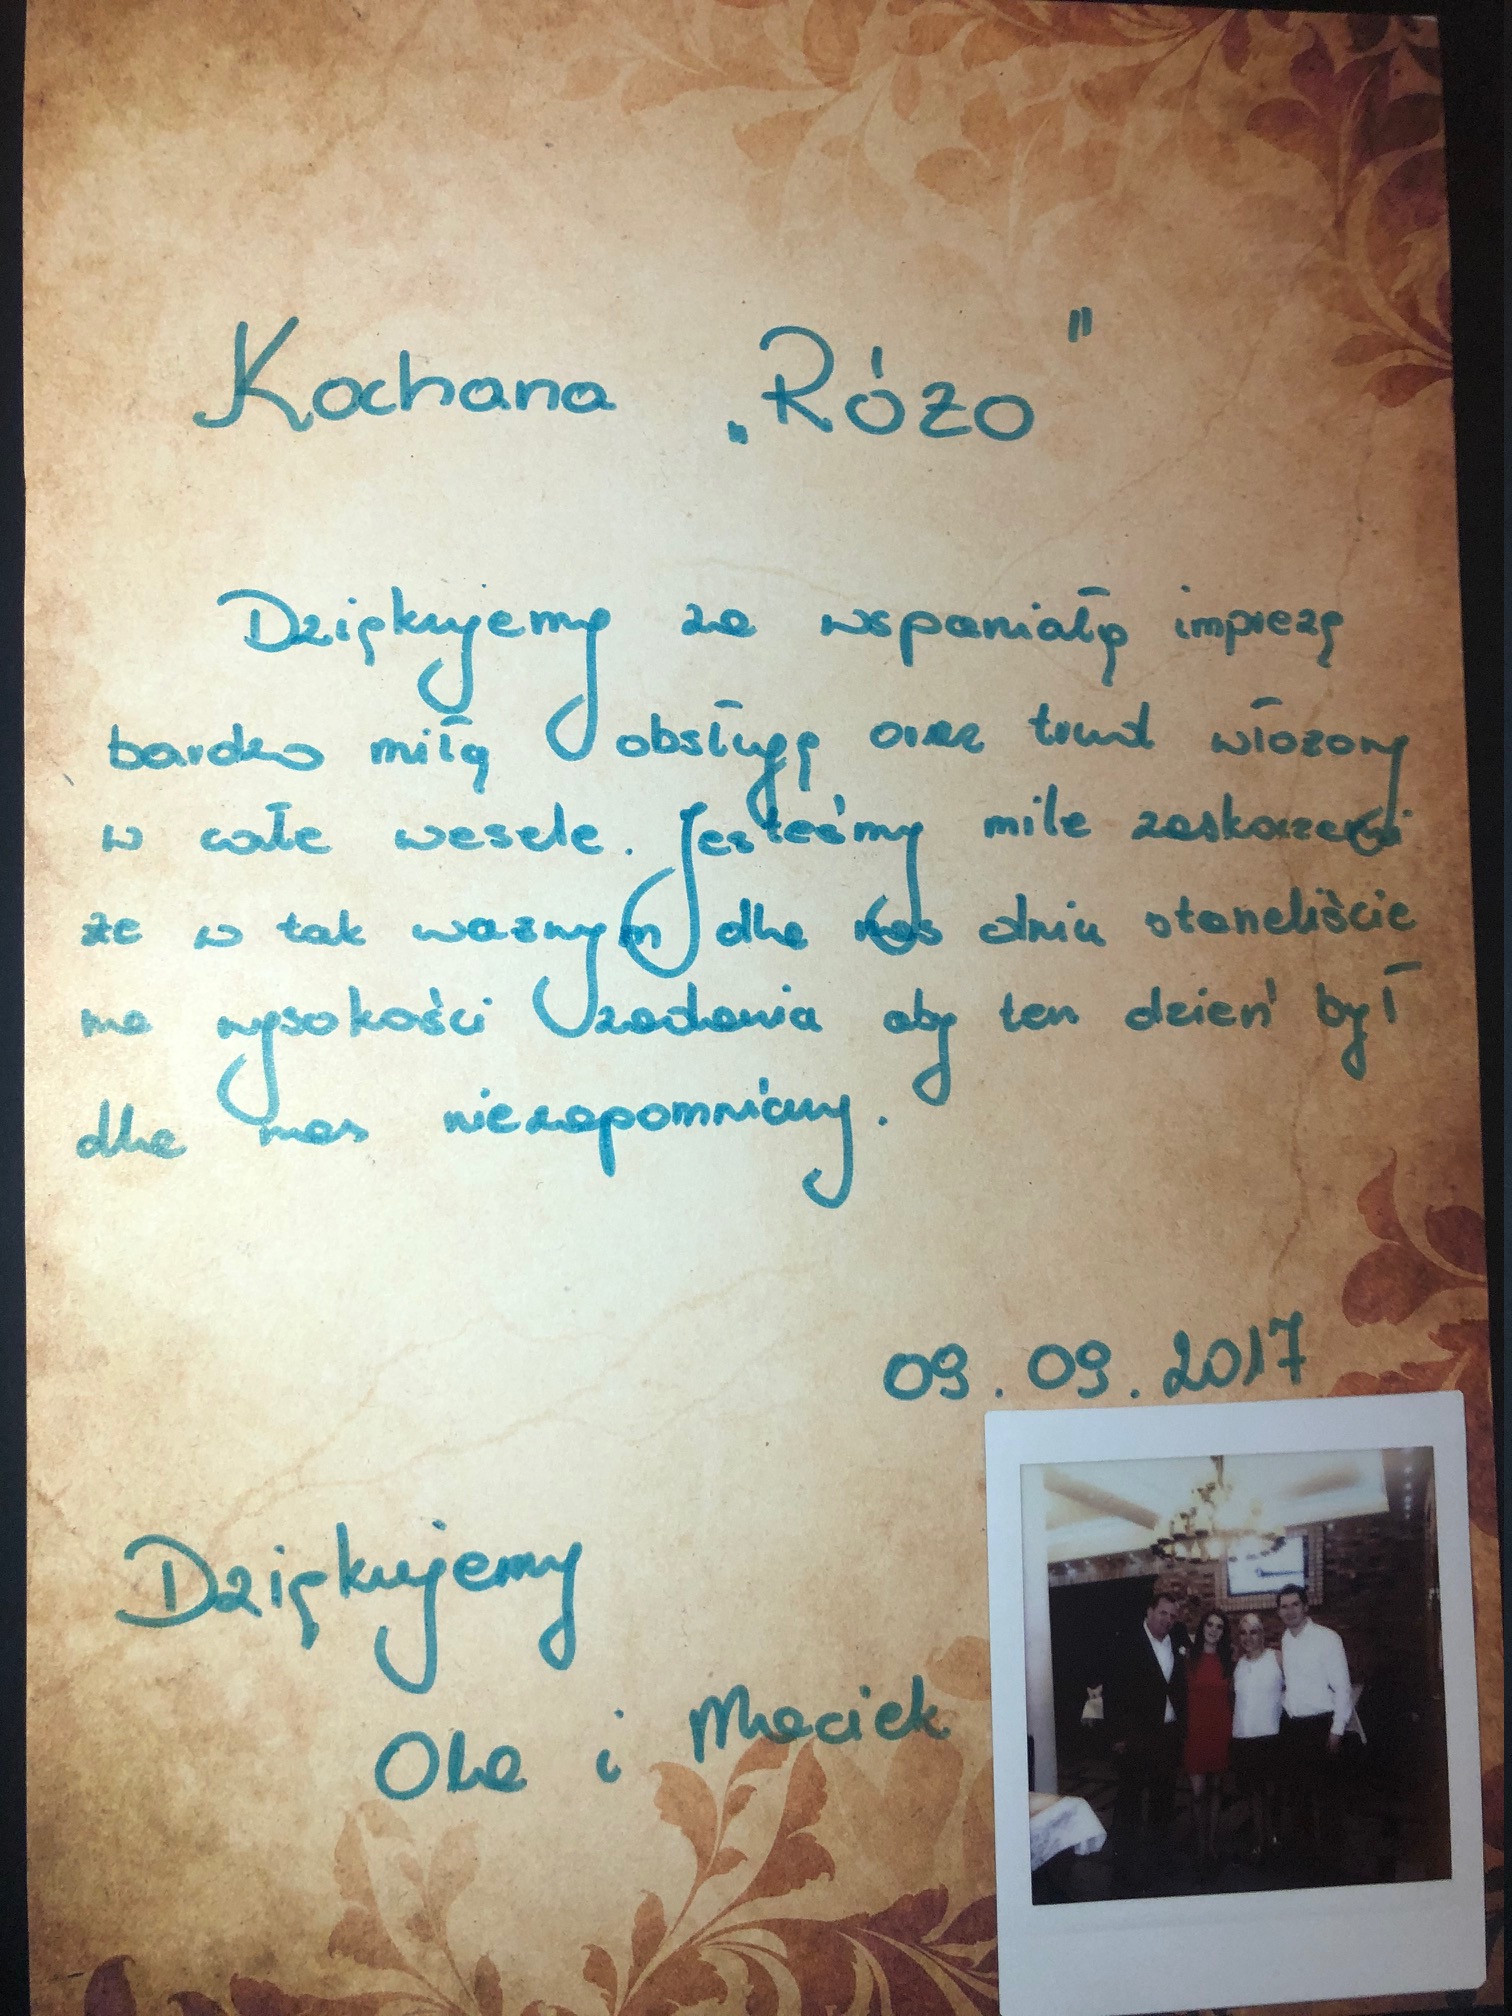 Kochana „Różo"
Dziękujemy za wspaniałą imprezę
bardzo miłą obsługę oraz trud włożony
w całe wesele. Jesteśmy mile zaskoczeni
że w tak ważnym dla nas dniu stanęliście
na wysokości zadania aby ten dzień był
dla nas niezapomniany.
09.09.2017
Dziękujemy
Ola i Maciek